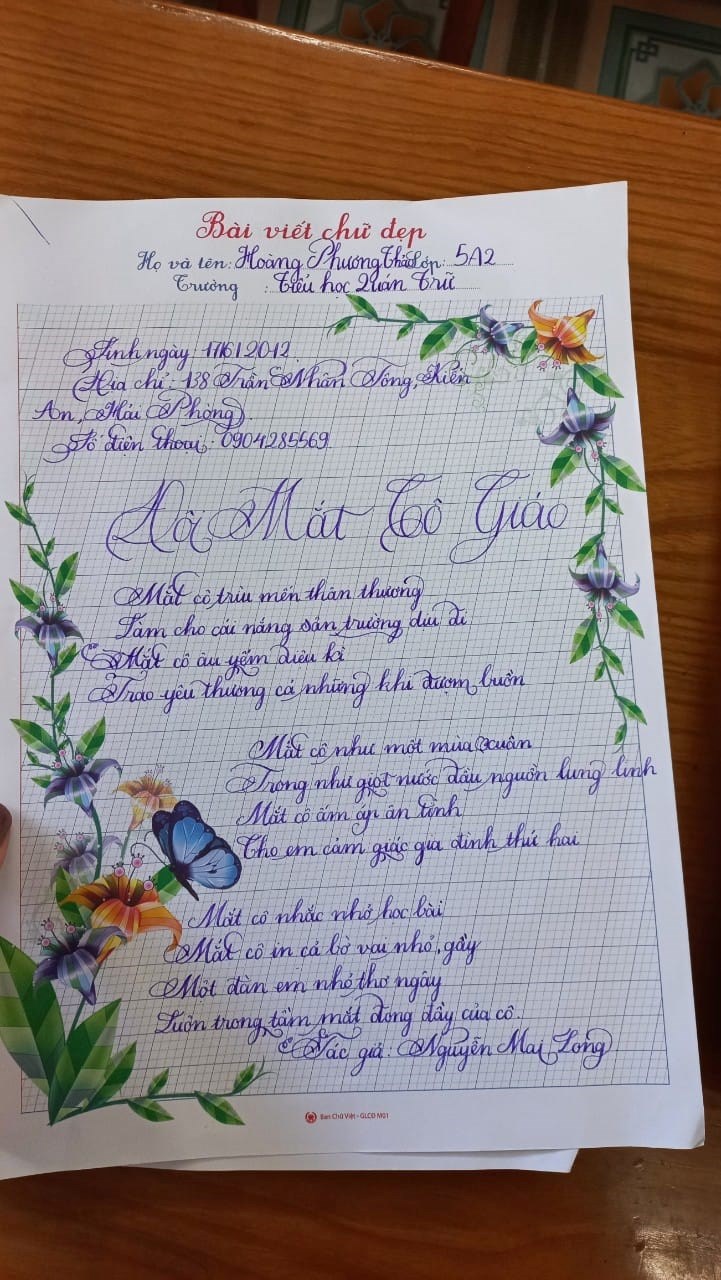 Bài viết chữ đẹp
Họ và tên: Hoàng Phương Thảo Lớp: 5A2
Trường : Tiểu học Quán Trữ
Sinh ngày 17/6/2012
Địa chỉ: 138 Trần Nhân Tông, Kiến
An, Hải Phòng
Số điện thoại: 0904285569
Đôi Mắt Cô Giáo
Mắt cô trìu mến thân thương
Làm cho cái nắng sân trường dịu đi
Mắt cô âu yếm diệu kì
Trao yêu thương cả những khi đượm buồn
Mắt cô như một mùa xuân
Trong như giọt nước đầu nguồn lung linh
Mắt cô ấm áp ân tình
Cho em cảm giác gia đình thứ hai
Mắt cô nhắc nhở học bài
Mắt cô in cả bờ vai nhỏ, gầy
Một đàn em nhỏ thơ ngây
Luôn trong tầm mắt đong đầy của cô.
Tác giả: Nguyễn Mai Long
Ban Chữ Việt - GLCD M01